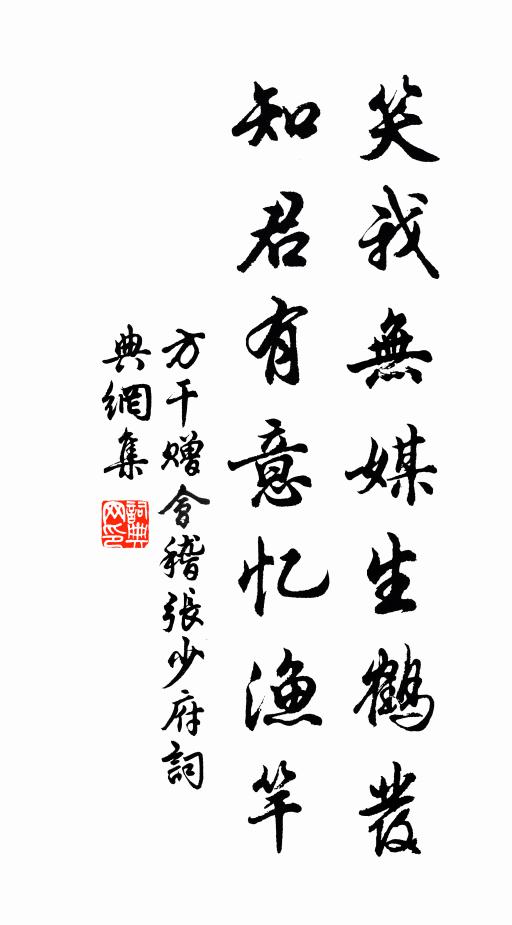 笑我無媒生鹤發
知君有意忆漁竿
方干赠會稽張少府詞
典網集
詞典网印